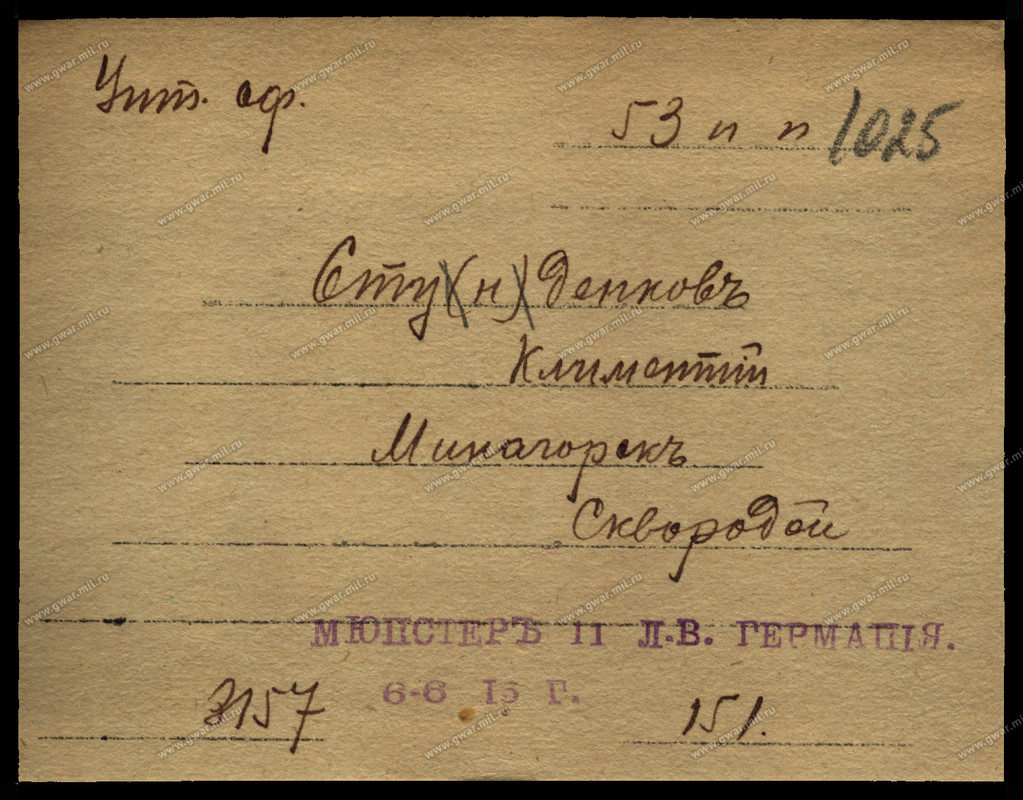 Унт. оф.
53 п п 1025
Сту(н)денковъ
Климентий
Минагорскъ
Сквородои
МЮНСТЕРЪ II Л.-В. ГЕРМАНІЯ.
6-6 15 Г.
3157 151.
www.gwar.mil.ru